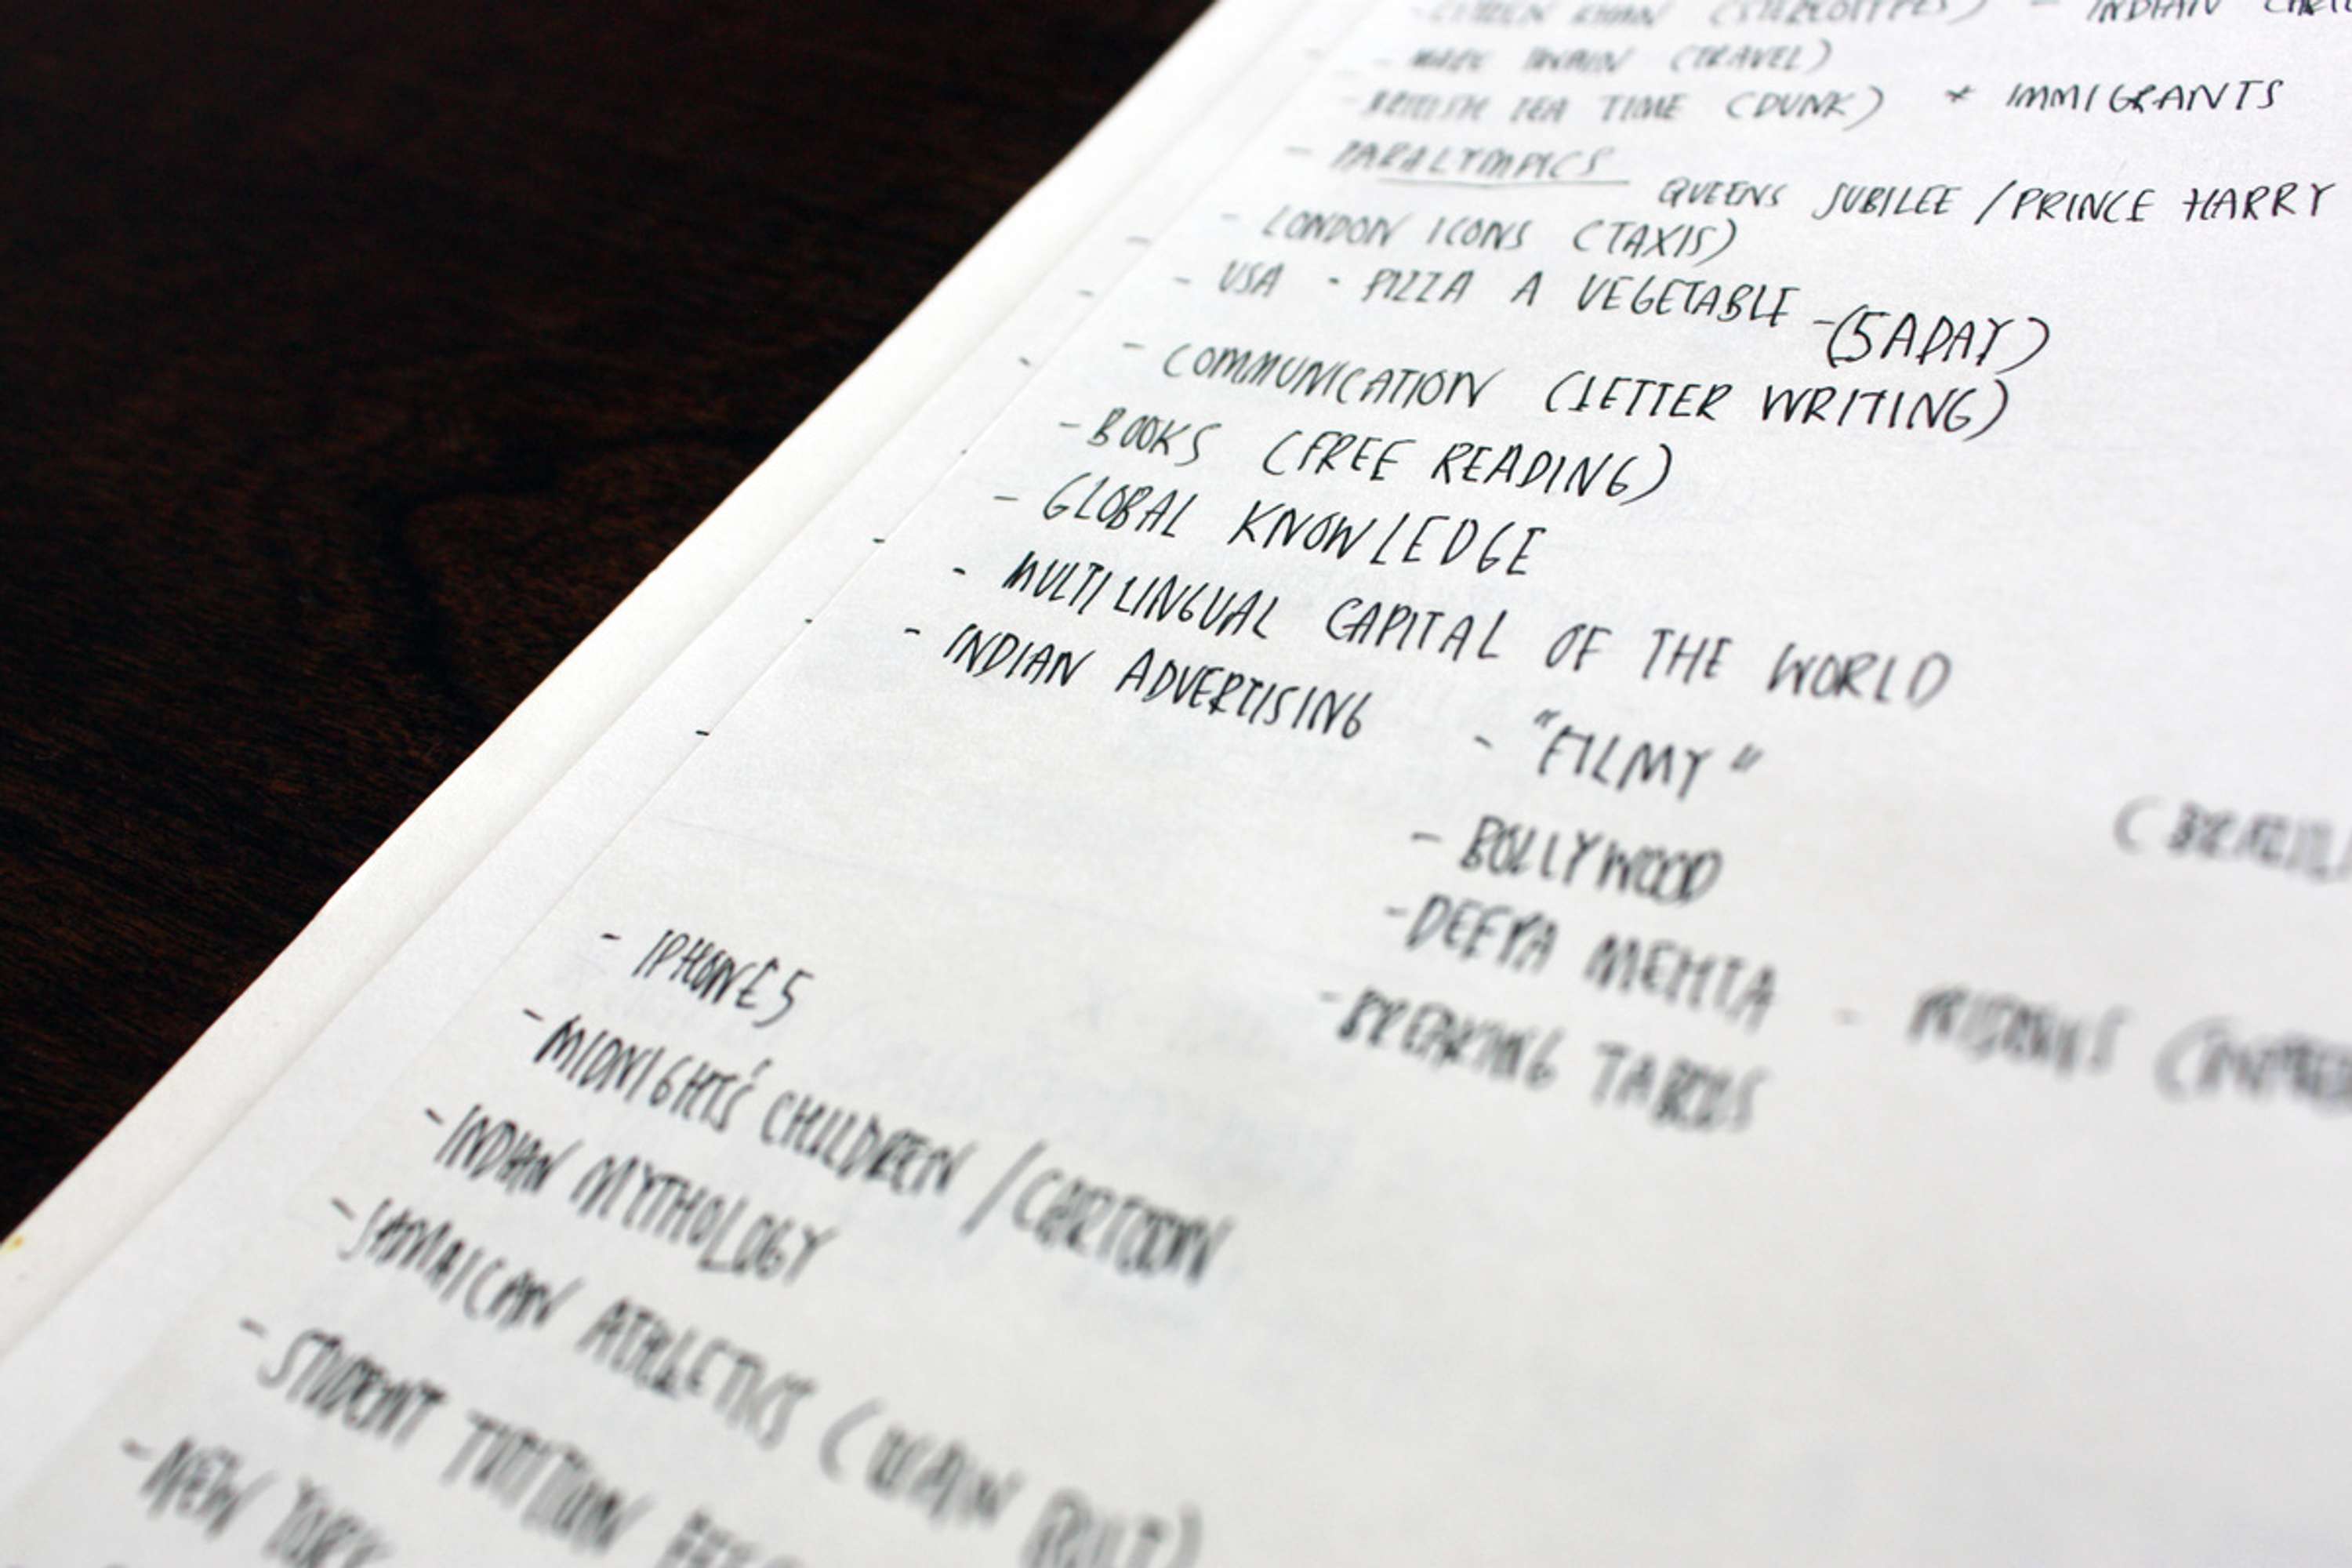 (STEREOTYPES) - INDIAN
- MARK TWAIN (TRAVEL)
- BRITISH TEA TIME (DUNK) * IMMIGRANTS
- PARALYMPICS
QUEENS JUBILEE / PRINCE HARRY
- LONDON ICONS (TAXIS)
- USA - PIZZA A VEGETABLE - (5 A DAY)
- COMMUNICATION (LETTER WRITING)
- BOOKS (FREE READING)
- GLOBAL KNOWLEDGE
- MULTILINGUAL CAPITAL OF THE WORLD
- INDIAN ADVERTISING - "FILMY"
- BOLLYWOOD
- DEEPA MEHTA -
- BREAKING TABOOS
- IPHONE 5
- MIDNIGHTS' CHILDREN / CARTOON
- INDIAN MYTHOLOGY
- JAMAICAN ATHLETICS (USAIN BOLT)
- STUDENT TUITION FEES
- NEW YORK